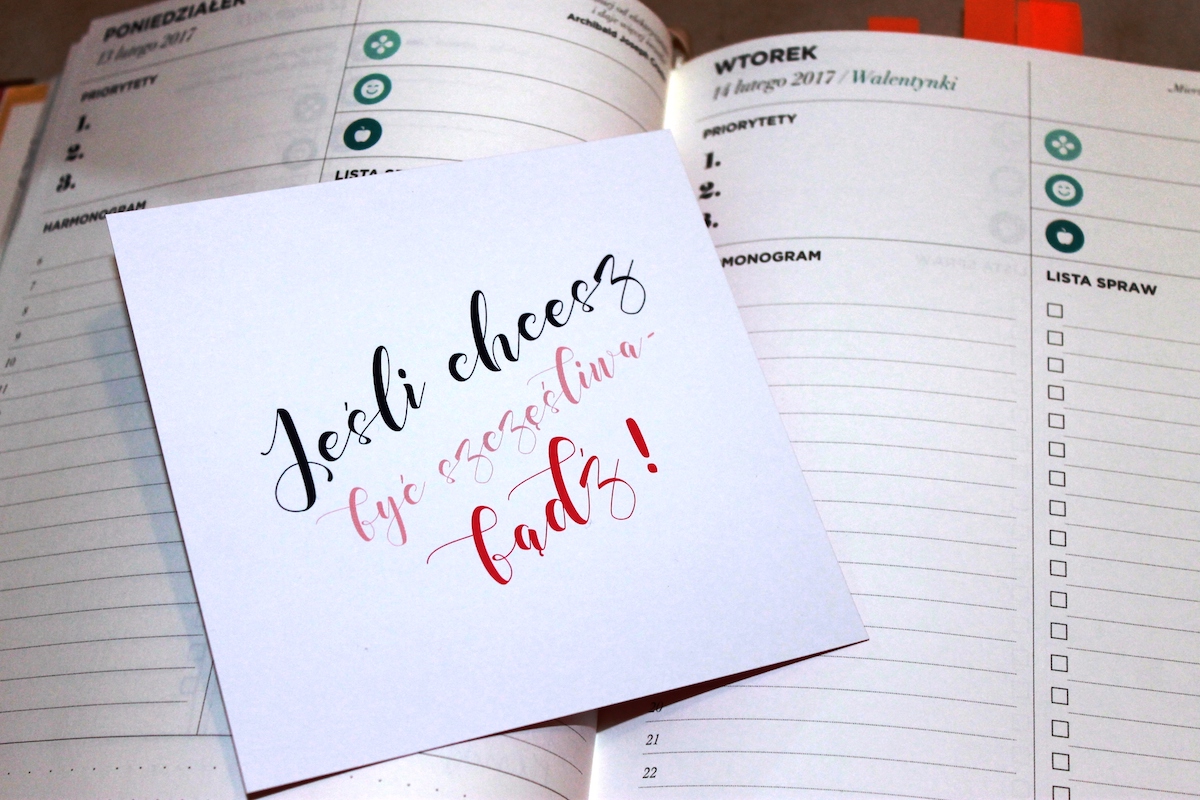 PONIEDZIAŁEK
13 lutego 2017
PRIORYTETY
1.
2.
3.
HARMONOGRAM
6
7
8
9
10
11
Archibald Joseph
LISTA
Jeśli chcesz
być szczęśliwa-
bądź!
WTOREK
14 lutego 2017 / Walentynki
PRIORYTETY
1.
2.
3.
MONOGRAM
LISTA SPRAW
20
21
22